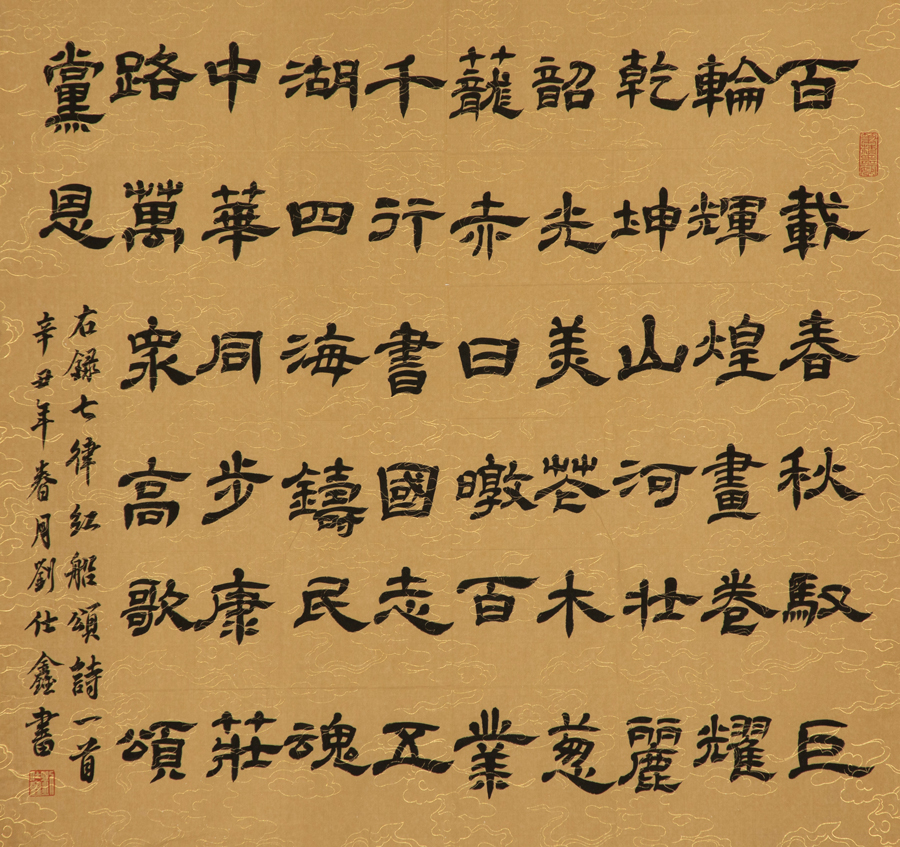 百載春秋馭巨
輪輝煌畫卷耀
乾坤山河壯麗
韶光美花木蔥
蘢赤日暾百業
千行書國志五
湖四海鑄民魂
中華同步康莊
路萬衆高歌頌
黨恩
右錄七律紅船頌詩一首
辛丑年春月劉仕鑫書